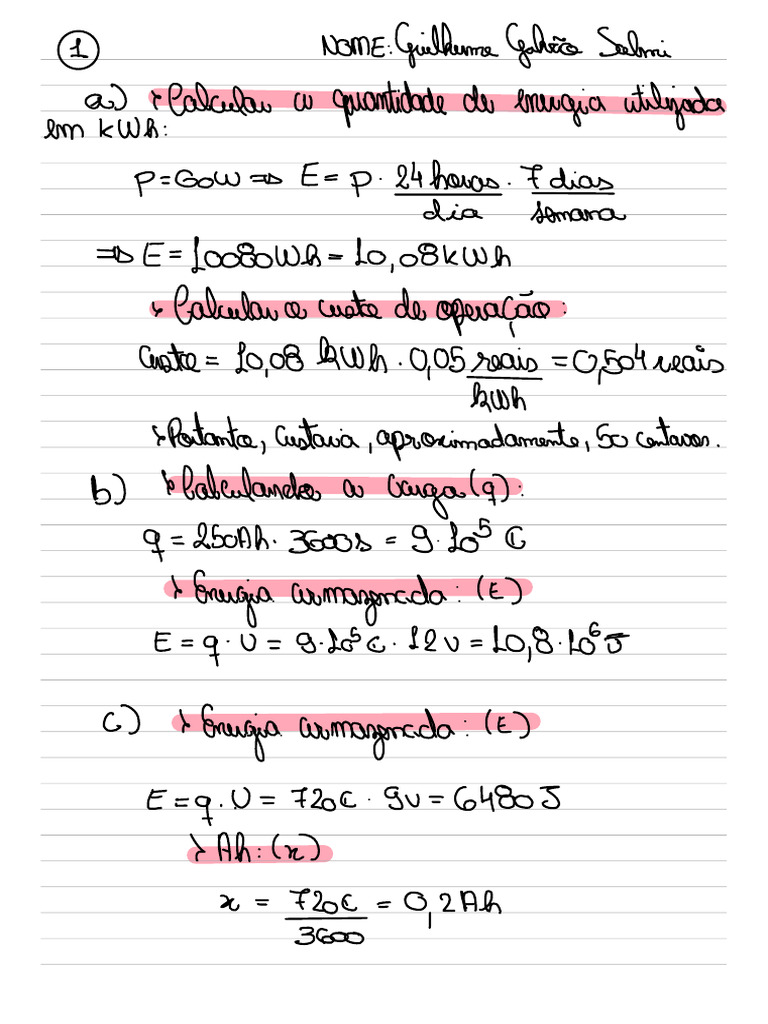 1 NOME: Guilherme Galvão Salmi
a) Calcular a quantidade de energia utilizada
em kWh:
P = 60W ⇒ E = P · 24 horas/dia · 7 dias/semana
⇒ E = 10080Wh = 10,08kWh
Calcular o custo de operação:
Custo = 10,08 kWh · 0,05 reais/kWh = 0,504 reais
Portanto, Custaria, aproximadamente, 50 centavos.
b) Calculando a Carga (q):
q = 250Ah · 3600s = 9·10⁵ C
Energia armazenada: (E)
E = q · U = 9·10⁵C · 12v = 10,8·10⁶J
c) Energia armazenada: (E)
E = q·U = 720C · 9v = 6480J
Ah: (x)
x = 720C/3600 = 0,2Ah